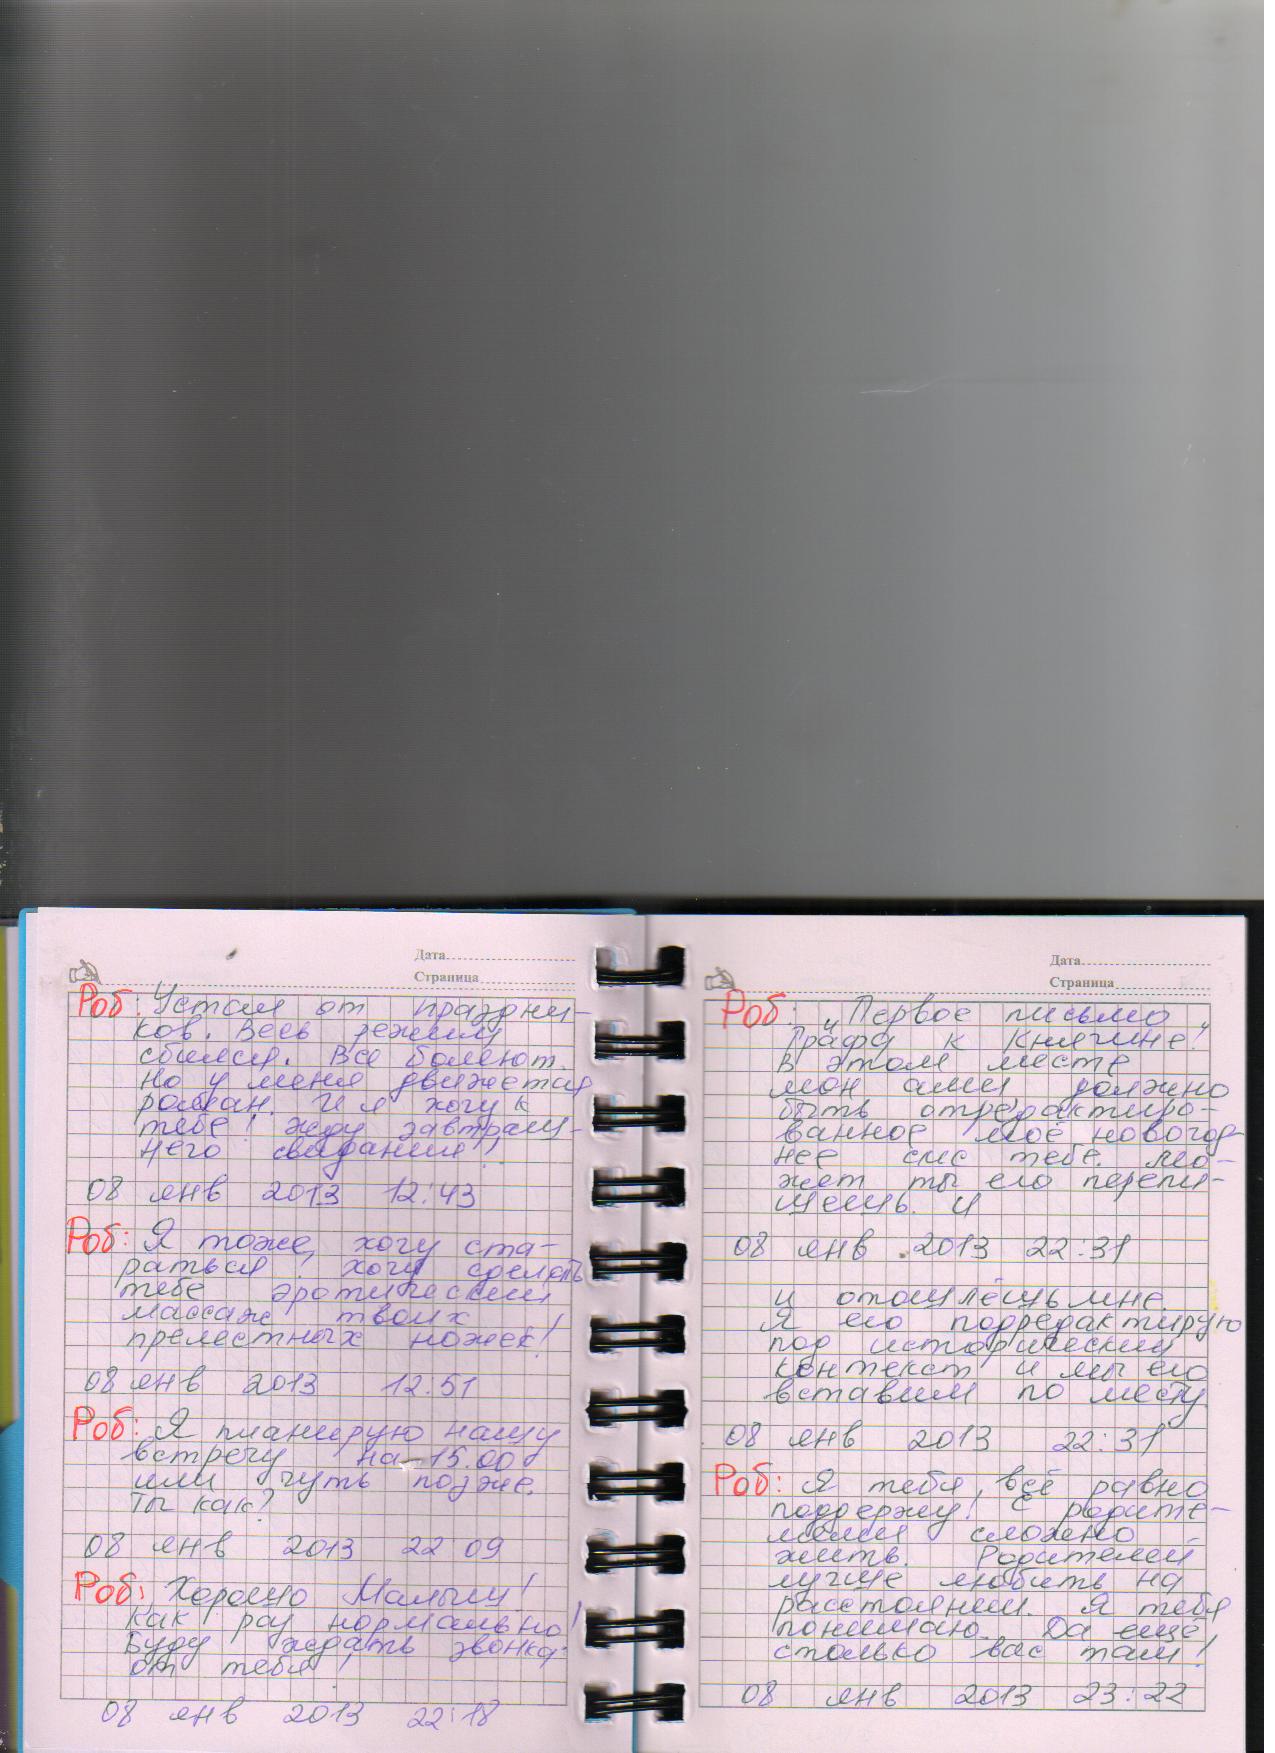 Дата
Страница
Роб: Устал от праздни-
ков. Весь режим
сбился. Все болеют.
Но у меня движется
роман. И я хочу к
тебе! Жду завтраш-
него свидания!
08 янв 2013 12:43
Роб: Я тоже, хочу ста-
раться! Хочу сделать
тебе эротический
массаж твоих
прелестных ножек!
08 янв 2013 12:51
Роб: Я планирую нашу
встречу на 15.00
или чуть позже.
Ты как?
08 янв 2013 22 09
Роб: Хорошо Малыш!
Как раз нормально!
Буду ждать звонка
от тебя!
08 янв 2013 22:18
Дата
Страница
Роб: „Первое письмо
Графа к Княгине!"
В этом месте
мон ами должно
быть отредактиро-
ванное моё новогод-
нее смс тебе. Мо-
жет ты его перепи-
шешь. И
08 янв 2013 22:31
и отошлёшь мне.
Я его подредактирую
под исторический
контекст и мы его
вставим по месту.
08 янв 2013 22:31
Роб: Я тебя, всё равно
поддержу! С родите-
лями сложно
жить. Родителей
лучше любить на
расстоянии. Я тебя
понимаю. Да ещё
столько вас там!
08 янв 2013 23:22